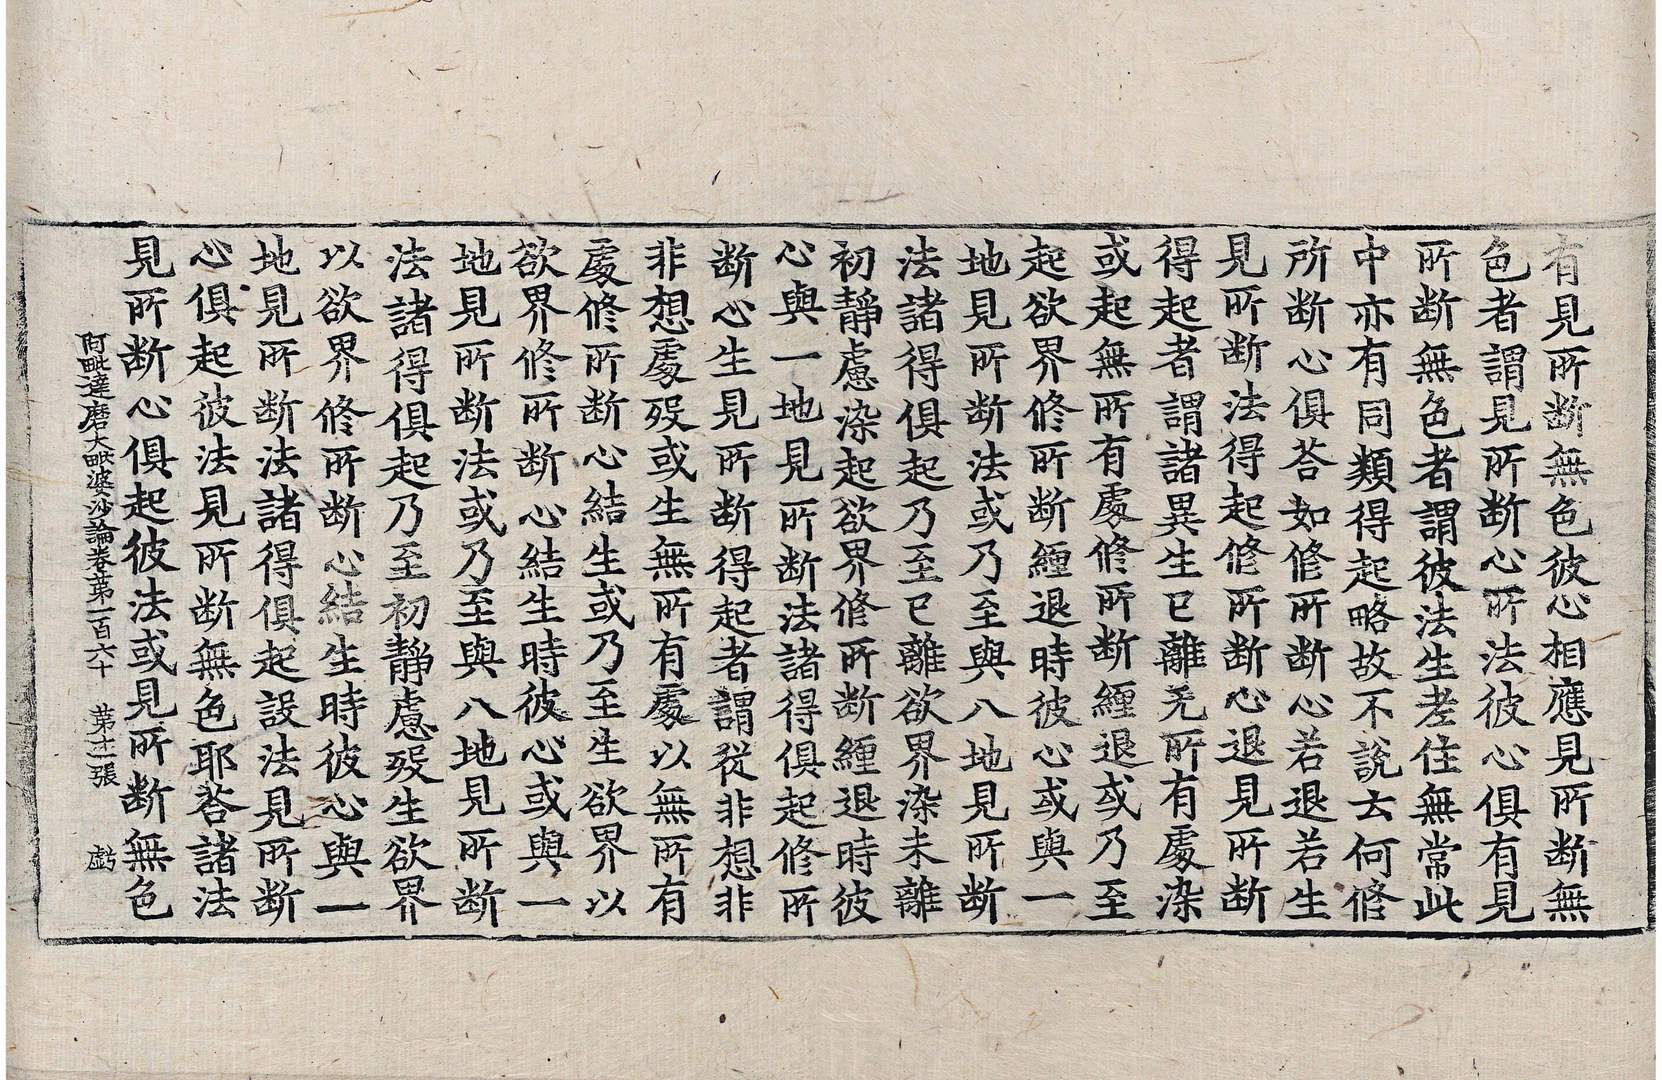 有見所断無色彼心相應見所断無
色者謂見所断心所法彼心俱有見
所断無色者謂彼法生老住無常此
中亦有同類得起略故不說云何修
所断心俱荅如修所断心若退若生
見所断法得起修所断心退見所断
得起者謂諸異生已離无所有處染
或起無所有處修所断纏退或乃至
起欲界修所断纏退時彼心或與一
地見所断法或乃至與八地見所断
法諸得俱起乃至已離欲界染未離
初靜慮染起欲界修所断纏退時彼
心與一地見所断法諸得俱起修所
断心生見所断得起者謂從非想非
非想處歿或生無所有處以無所有
處修所断心結生或乃至生欲界以
欲界修所断心結生時彼心或與一
地見所断法或乃至與八地見所断
法諸得俱起乃至初靜慮歿生欲界
以欲界修所断心結生時彼心與一
地見所断法諸得俱起設法見所断
心俱起彼法見所断無色耶荅諸法
見所断心俱起彼法或見所断無色
阿毗達磨大毗婆沙論卷第一百六十 第十二張 虧